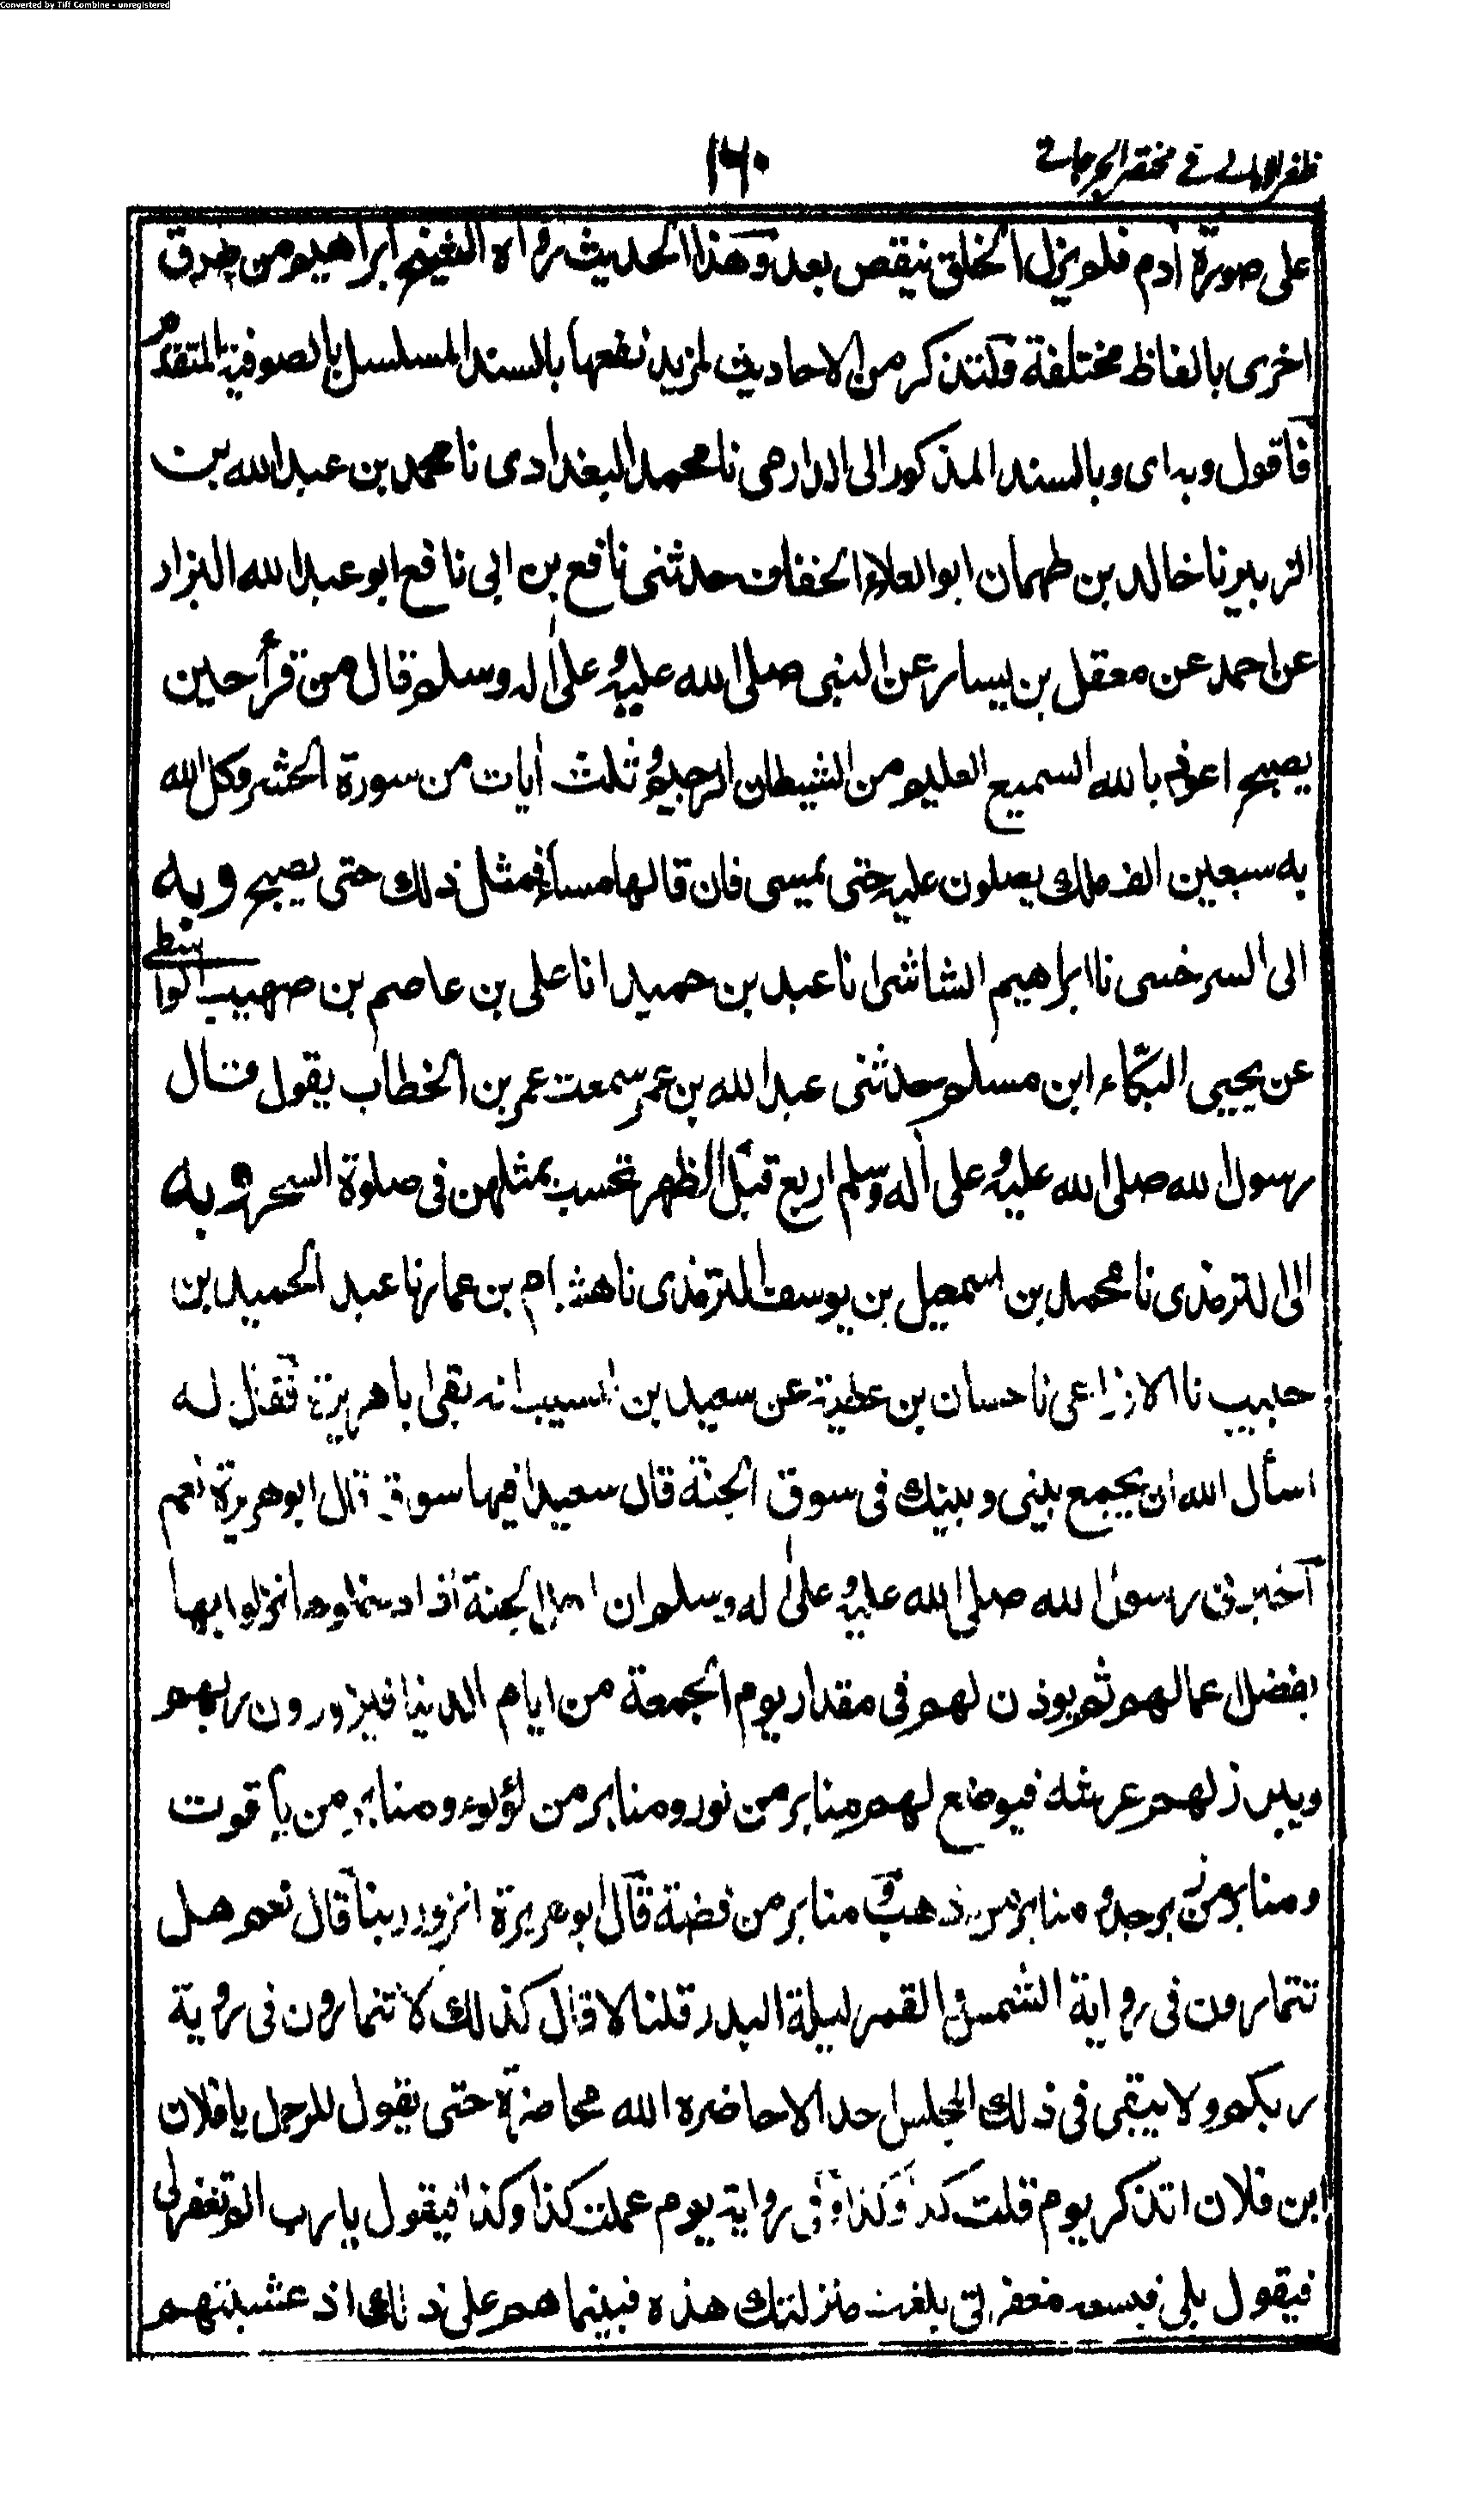 Converted by Tiff Combine - unregistered
ظفر الامانی فی مختصر الجرجانی
۱۶۰
علی صورة اٰدم فلم یزل الخلق ینقص بعد وهذا الحدیث رواه الشیخ ابراهیم من طرق
اخری بالفاظ مختلفة ولنذکر من الاحادیث لمزید نفعها بالسند المسلسل بالصوفیة المتقدم
فاقول وبدای وبالسند المذکور الی الدارمی نا محمد البغدادی نا محمد بن عبد الله بن
الزبیر نا خالد بن طهمان ابو العلاء الخفاف حدثنی نافع بن ابی نافع ابو عبد الله البزار
عن احمد عن معقل بن یسار عن النبی صلی الله علیه وعلی اٰله وسلم قال من قرأ حین
یصبح اعوذ بالله السمیع العلیم من الشیطان الرجیم وثلث اٰیات من سورة الحشر وکل الله
به سبعین الف ملك یصلون علیه حتی یمسی فان قالها مساء فمثل ذلك حتی یصبح وبه
الی السرخسی نا ابراهیم الشاشی انا عبد بن حمید انا علی بن عاصم بن صهیب الواسطی
عن یحیی البکّاء ابن مسلم حدثنی عبد الله بن عمر سمعت عمر بن الخطاب یقول قال
رسول الله صلی الله علیه وعلی اٰله وسلم اربع قبل الظهر تحسب بمثلهن فی صلوة السحر وبه
الی الترمذی نا محمد بن اسمعیل بن یوسف الترمذی نا هشام بن عمار نا عبد الحمید بن
حبیب نا الاوزاعی نا حسان بن عطیة عن سعید بن المسیب انه لقی ابا هریرة فقال له
اسأل الله ان یجمع بینی وبینك فی سوق الجنة قال سعید افیها سوق قال ابو هریرة نعم
اخبرنی رسول الله صلی الله علیه وعلی اٰله وسلم ان اهل الجنة اذا دخلوها نزلوا بها
بفضل اعمالهم ثم یوذن لهم فی مقدار یوم الجمعة من ایام الدنیا فیزورون ربهم
ویبرز لهم عرشه فیوضع لهم منابر من نور ومنابر من لؤلوء ومنابر من یاقوت
ومنابر من زبرجد ومنابر من ذهب ومنابر من فضة قال ابو هریرة انزور ربنا قال نعم هل
تتمارون فی روایة الشمس والقمر لیلة البدر قلنا لا قال کذلك لا تتمارون فی رویة
ربکم ولا یبقی فی ذلك المجلس احد الا حاضره الله محاضرة حتی یقول للرجل یا فلان
ابن فلان اتذکر یوم قلت کذا وکذا وفی روایة یوم عملت کذا وکذا فیقول یا رب الم تغفر لی
فیقول بلی فبسعة مغفرتی بلغت منزلتك هذه فبینما هم علی ذلك اذ غشیتهم